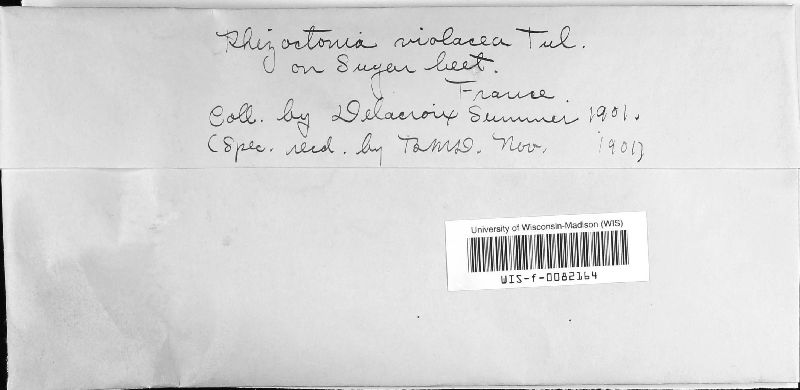 Rhizoctonia violacea Tul.
on Sugar beet.
France.
Coll. by Delacroix Summer 1901.
(Spec. recd. by Nov. 1901)
University of Wisconsin-Madison (WIS)
WIS-f-0082164